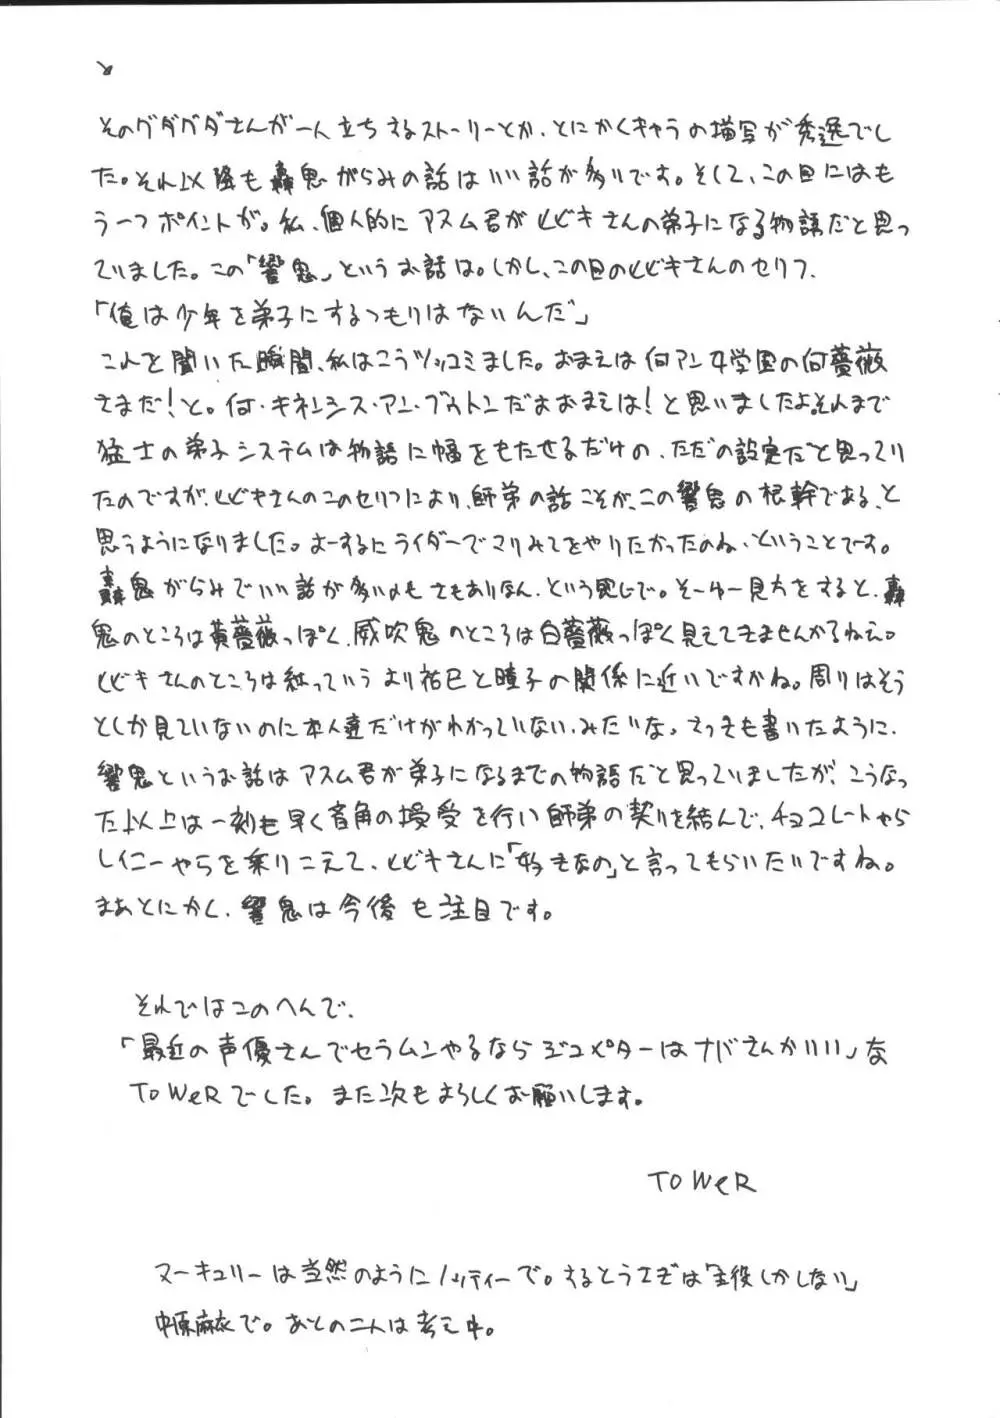 そのグダグダさんが一人立ちするストーリーとか、とにかくキャラの描写が秀逸でし
た。それ以降も轟鬼がらみの話はいい話が多いです。そして、この回にはも
う一つポイントが。私、個人的にアスム君がヒビキさんの弟子になる物語だと思っ
ていました。この「響鬼」というお話は。しかし、この回のヒビキさんのセリフ、
「俺は少年を弟子にするつもりはないんだ」
これを聞いた瞬間、私はこうツッコミました。おまえは何アン女学園の何薔薇
さまだ!と。何・キネンシス・アン・ブゥトンだよおまえは!と思いましたよ。それまで
猛士の弟子システムは物語に幅をもたせるだけの、ただの設定だと思ってい
たのですが、ヒビキさんのこのセリフにより、師弟の話こそが、この響鬼の根幹である、と
思うようになりました。よーするにライダーでマリみてをやりたかったのね、ということです。
轟鬼がらみでいい話が多いのもさもありなん、という感じで。そーゆー見方をすると、轟
鬼のところは黄薔薇っぽく、威吹鬼のところは白薔薇っぽく見えてきませんかねぇ。
ヒビキさんのところは紅っていうより祐巳と瞳子の関係に近いですかね。周りはそう
としか見ていないのに本人達だけがわかっていない、みたいな。さっきも書いたように、
響鬼というお話はアスム君が弟子になるまでの物語だと思っていましたが、こうなっ
た以上は一刻も早く音角の授受を行い師弟の契りを結んで、チョコレートやら
レイニーやらを乗りこえて、ヒビキさんに「好きなの」と言ってもらいたいですね。
まあとにかく、響鬼は今後も注目です。
それではこのへんで、
「最近の声優さんでセラムンやるならジュピターはナバさんかいい」な
TOWeRでした。また次もよろしくお願いします。
TOWeR
マーキュリーは当然のようにノッティーで。するとうさぎは「主役しかしない」
中原麻衣で。あとの二人は考え中。